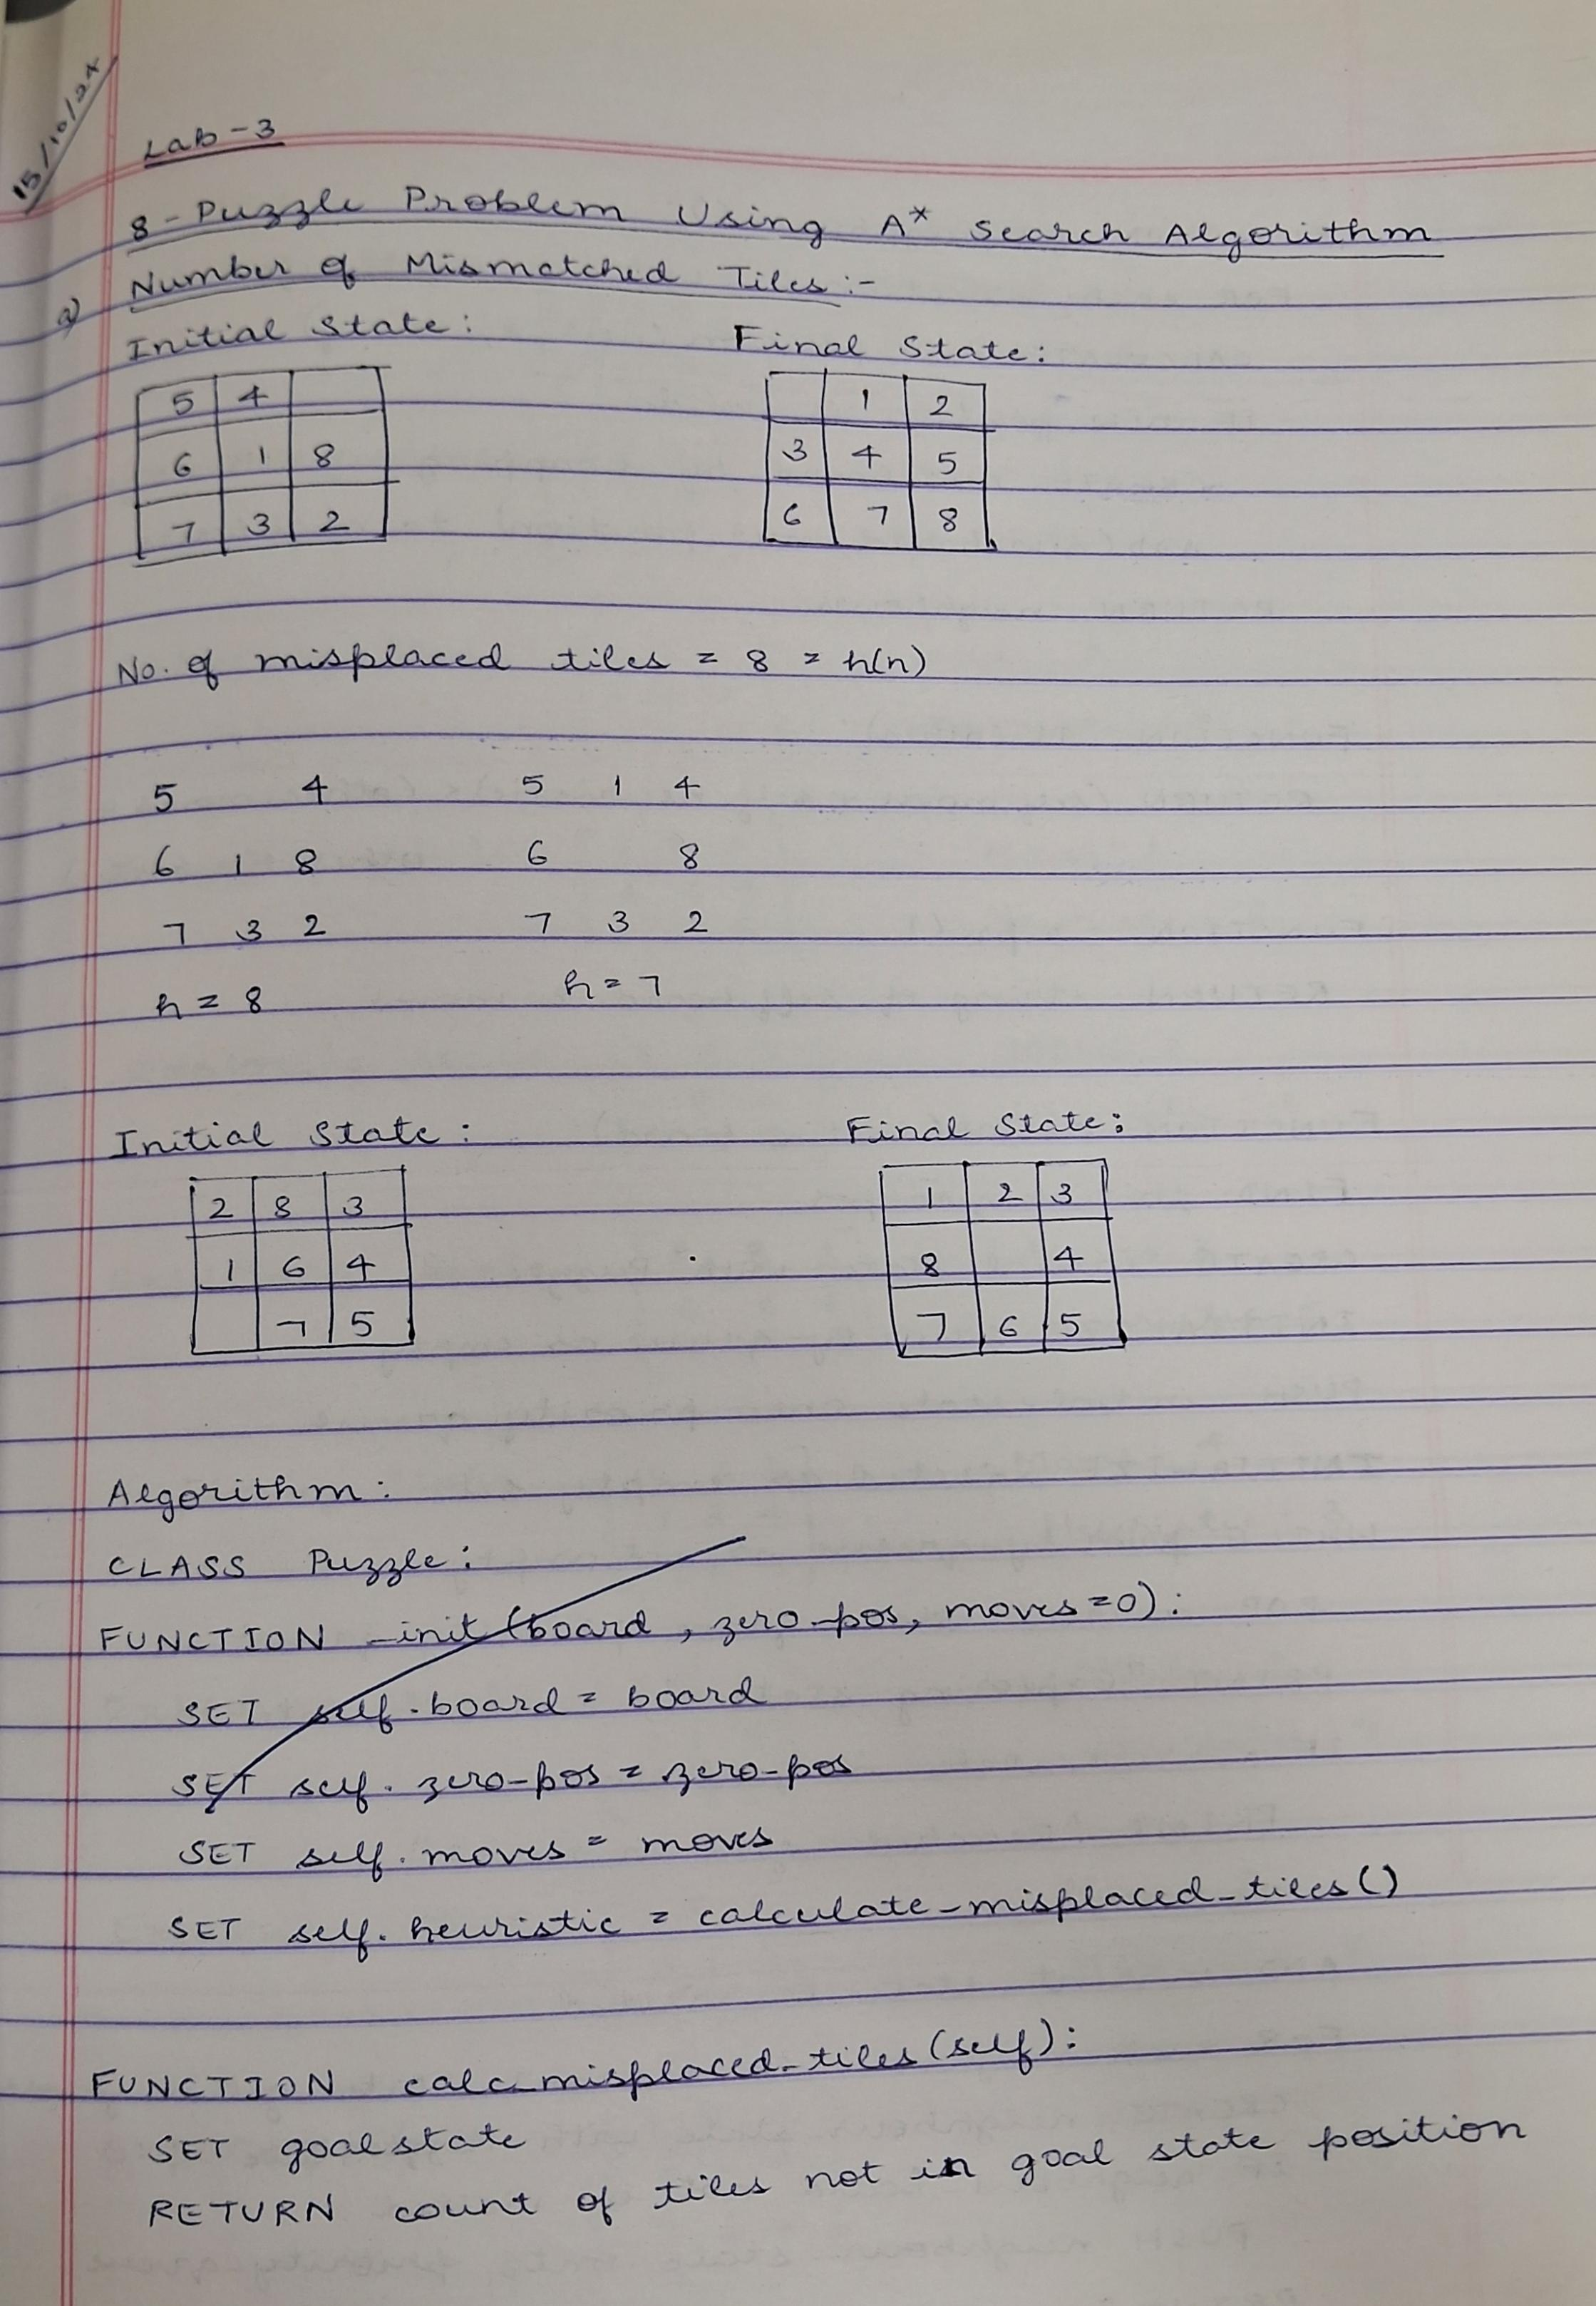 15/10/24
Lab-3
8-Puzzle Problem Using A* Search Algorithm
a) Number of Mismatched Tiles:-
Initial State: Final State:
5 4 1 2
6 1 8 3 4 5
7 3 2 6 7 8
No. of misplaced tiles = 8 = h(n)
5 4 5 1 4
6 1 8 6 8
7 3 2 7 3 2
h = 8 h = 7
Initial State: Final State:
2 8 3 1 2 3
1 6 4 8 4
7 5 7 6 5
Algorithm:
CLASS Puzzle:
FUNCTION _init (board, zero_pos, moves=0):
SET self.board = board
SET self.zero-pos = zero-pos
SET self.moves = moves
SET self.heuristic = calculate_misplaced_tiles()
FUNCTION calc_misplaced_tiles(self):
SET goalstate
RETURN count of tiles not in goal state position